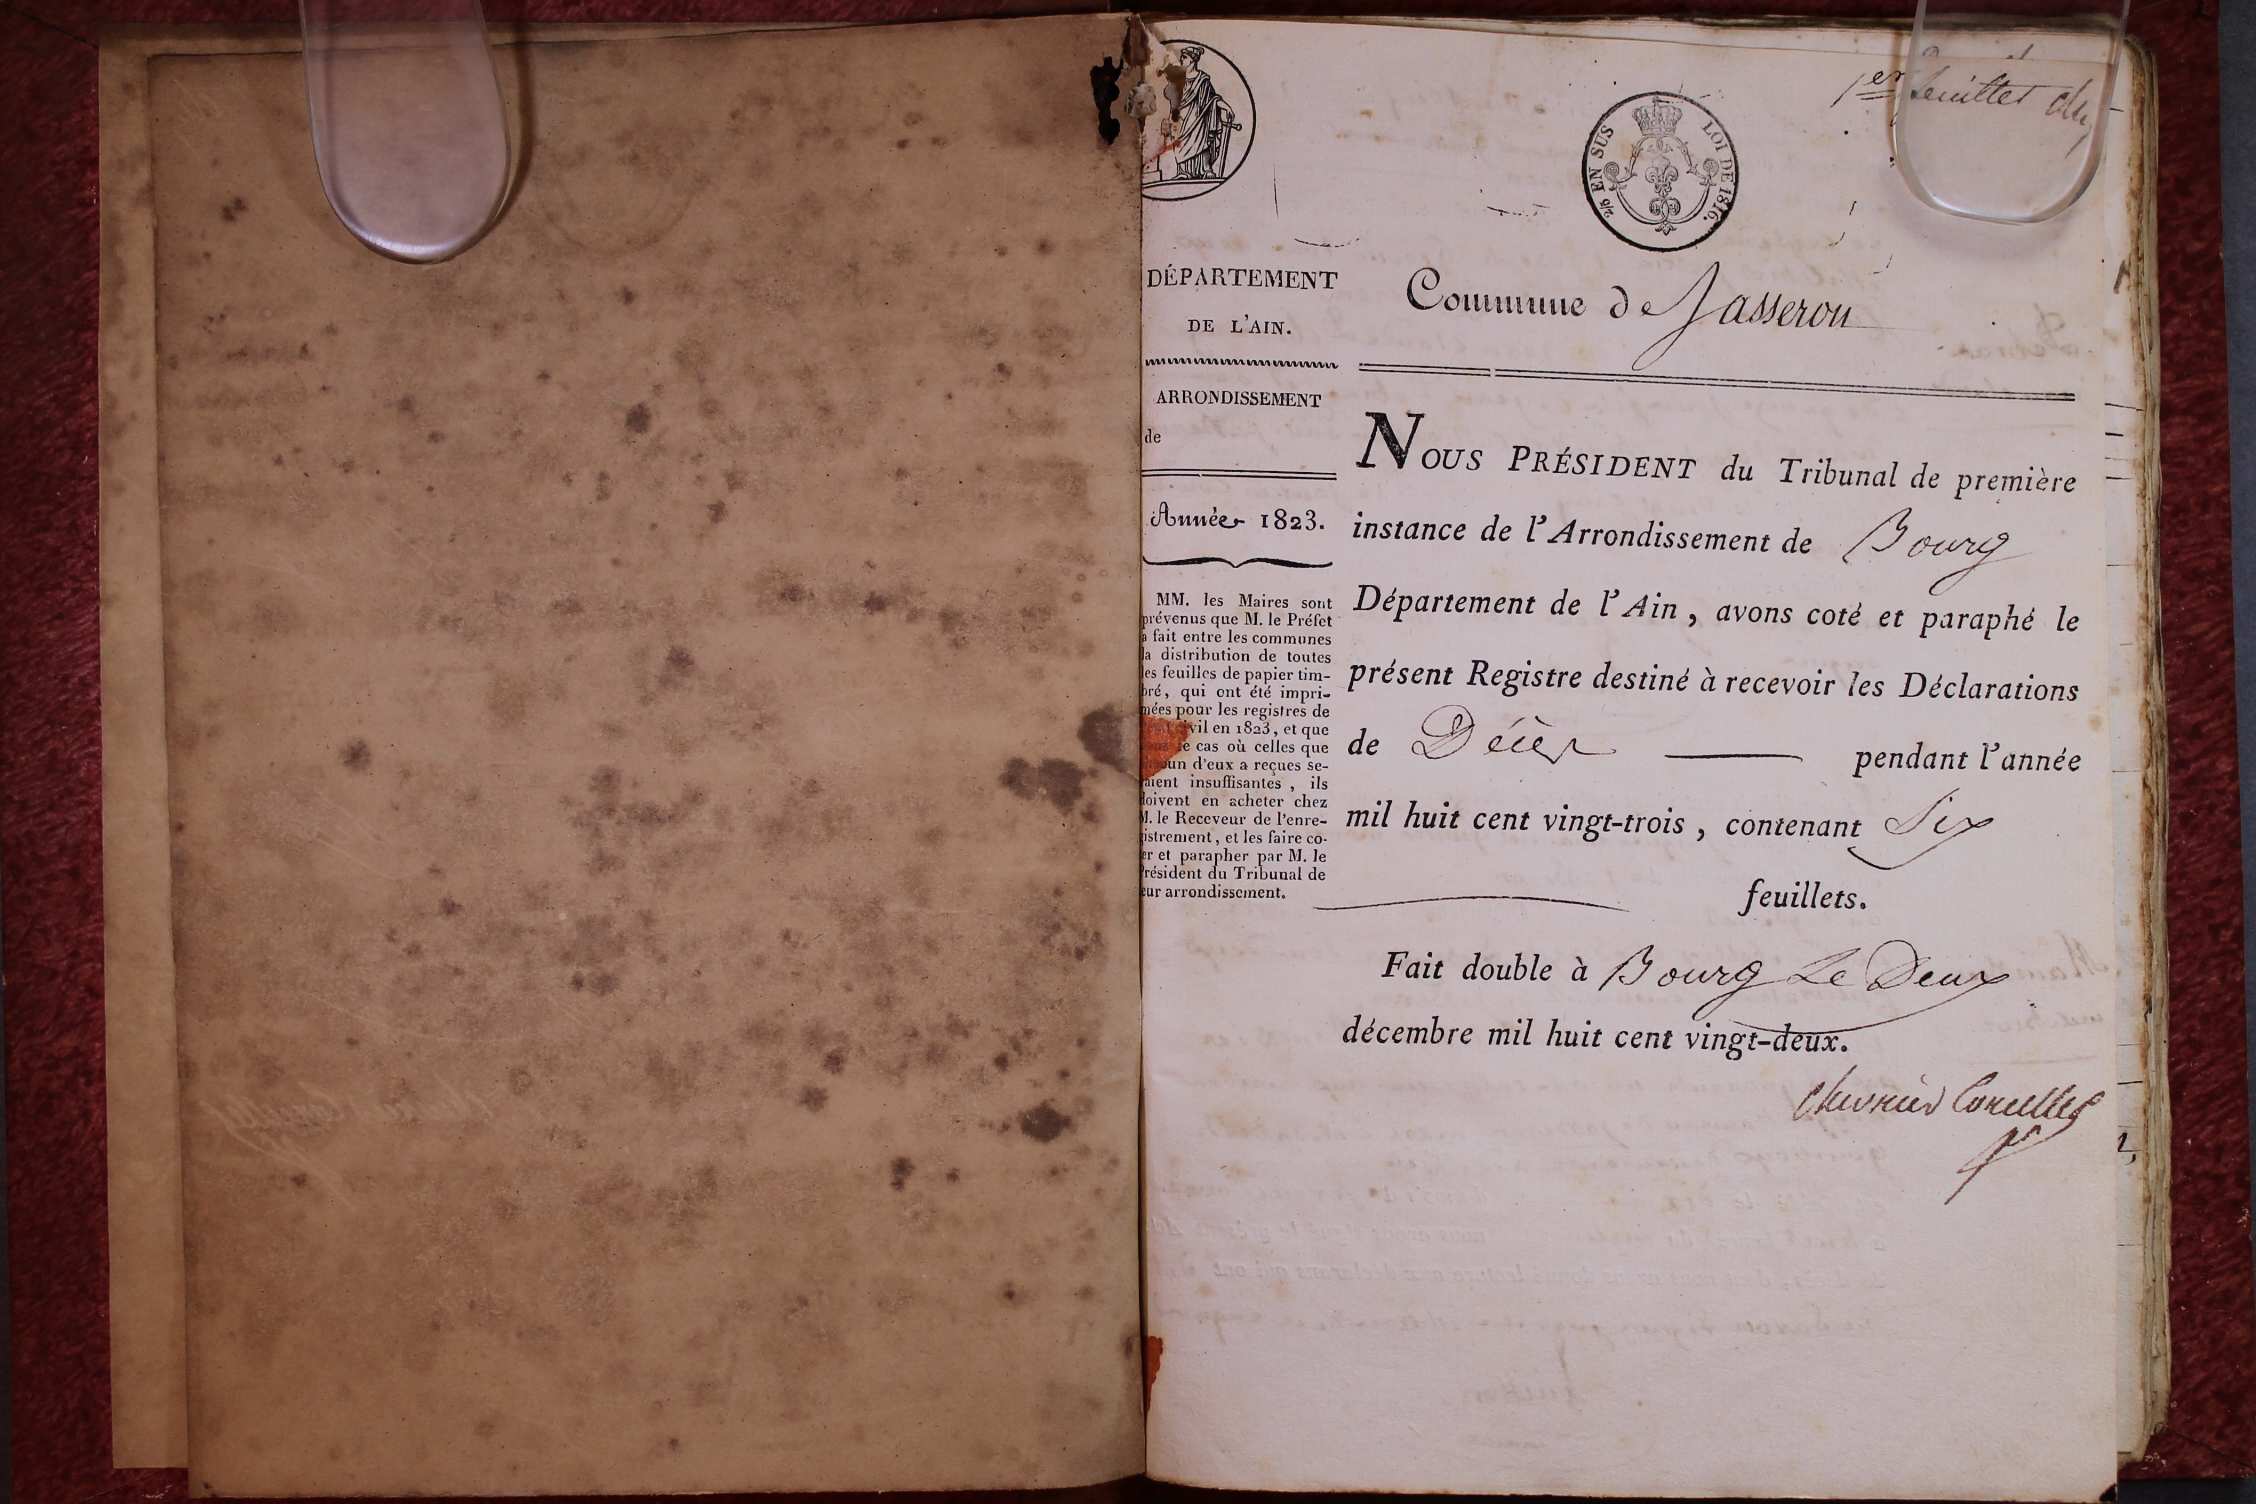 1er feuillet
2/5 EN SUS LOI DE 1816.
DÉPARTEMENT
DE L'AIN.
ARRONDISSEMENT
de
Année 1823.
MM. les Maires sont
prévenus que M. le Préfet
a fait entre les communes
la distribution de toutes
les feuilles de papier tim-
bré, qui ont été impri-
mées pour les registres de
civil en 1823, et que
le cas où celles que
d'eux a reçues se-
raient insuffisantes, ils
doivent en acheter chez
M. le Receveur de l'enre-
gistrement, et les faire co-
ter et parapher par M. le
Président du Tribunal de
leur arrondissement.
Commune de Jasseron
NOUS PRÉSIDENT du Tribunal de première
instance de l'Arrondissement de Bourg
Département de l'Ain, avons coté et paraphé le
présent Registre destiné à recevoir les Déclarations
de Décès pendant l'année
mil huit cent vingt-trois, contenant Six
feuillets.
Fait double à Bourg Le Deux
décembre mil huit cent vingt-deux.
Chevrier Corcelles